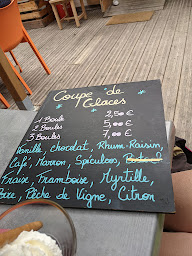 Coupe de
Glaces
1 Boule 2,50 €
2 Boules 5,00 €
3 Boules 7,00 €
Vanille, chocolat, Rhum-Raisin,
Café, Marron, Spéculoos,
Fraise, Framboise, Myrtille,
Poire, Pêche de Vigne, Citron